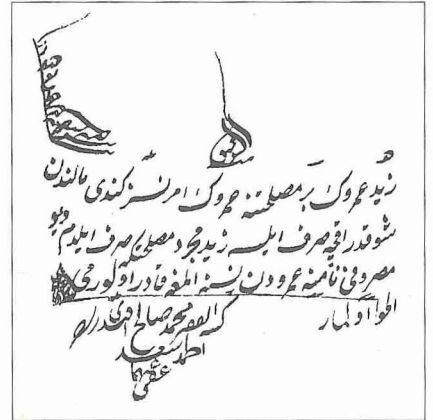 زيد عمروك بر مصلحتنه عمروك امرنسز كندى مالندن
شو قدر اقچه صرف ايلسه زيد مجرد مصلحتكه صرف ايلدم ديو
مصروفى نامنه عمرودن نسنه المغه قادر اولورمى
الجواب اولماز
كتبه الفقير محمد صالح افندى زاده
احمد اسعد
عفى عنهما